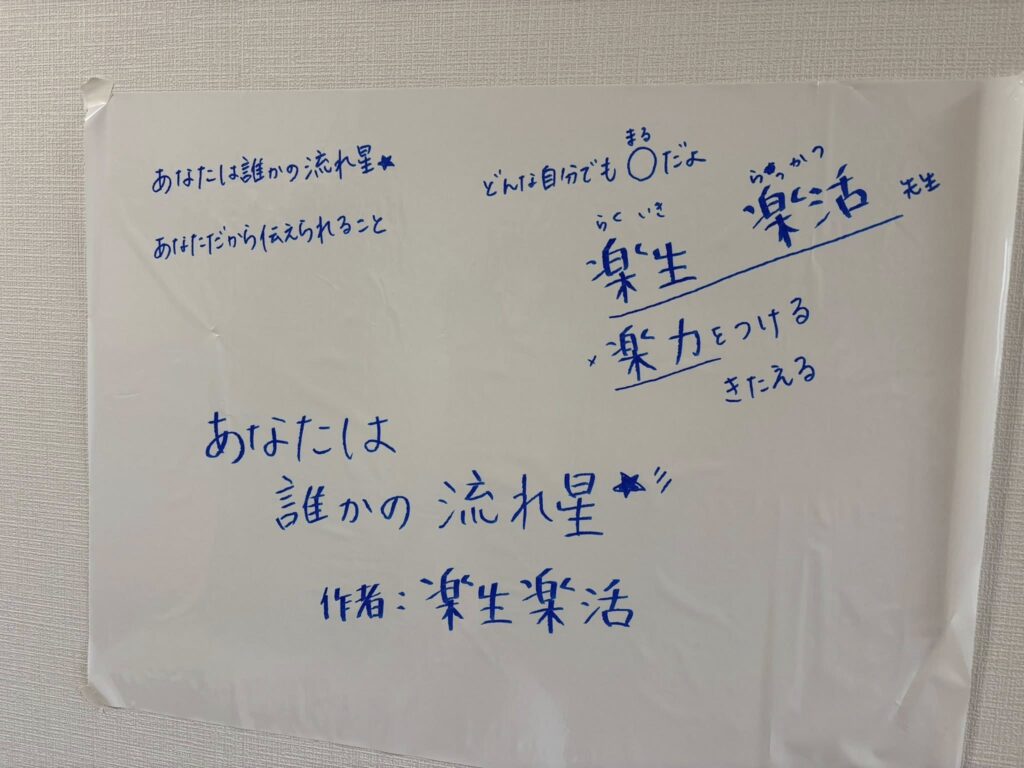 あなたは誰かの流れ星★
あなただから伝えられること
まる
どんな自分でも○だよ
らく いき
楽生
かつ
楽活 先生
×楽力をつける
きたえる
あなたは
誰かの 流れ星★
作者:楽生楽活